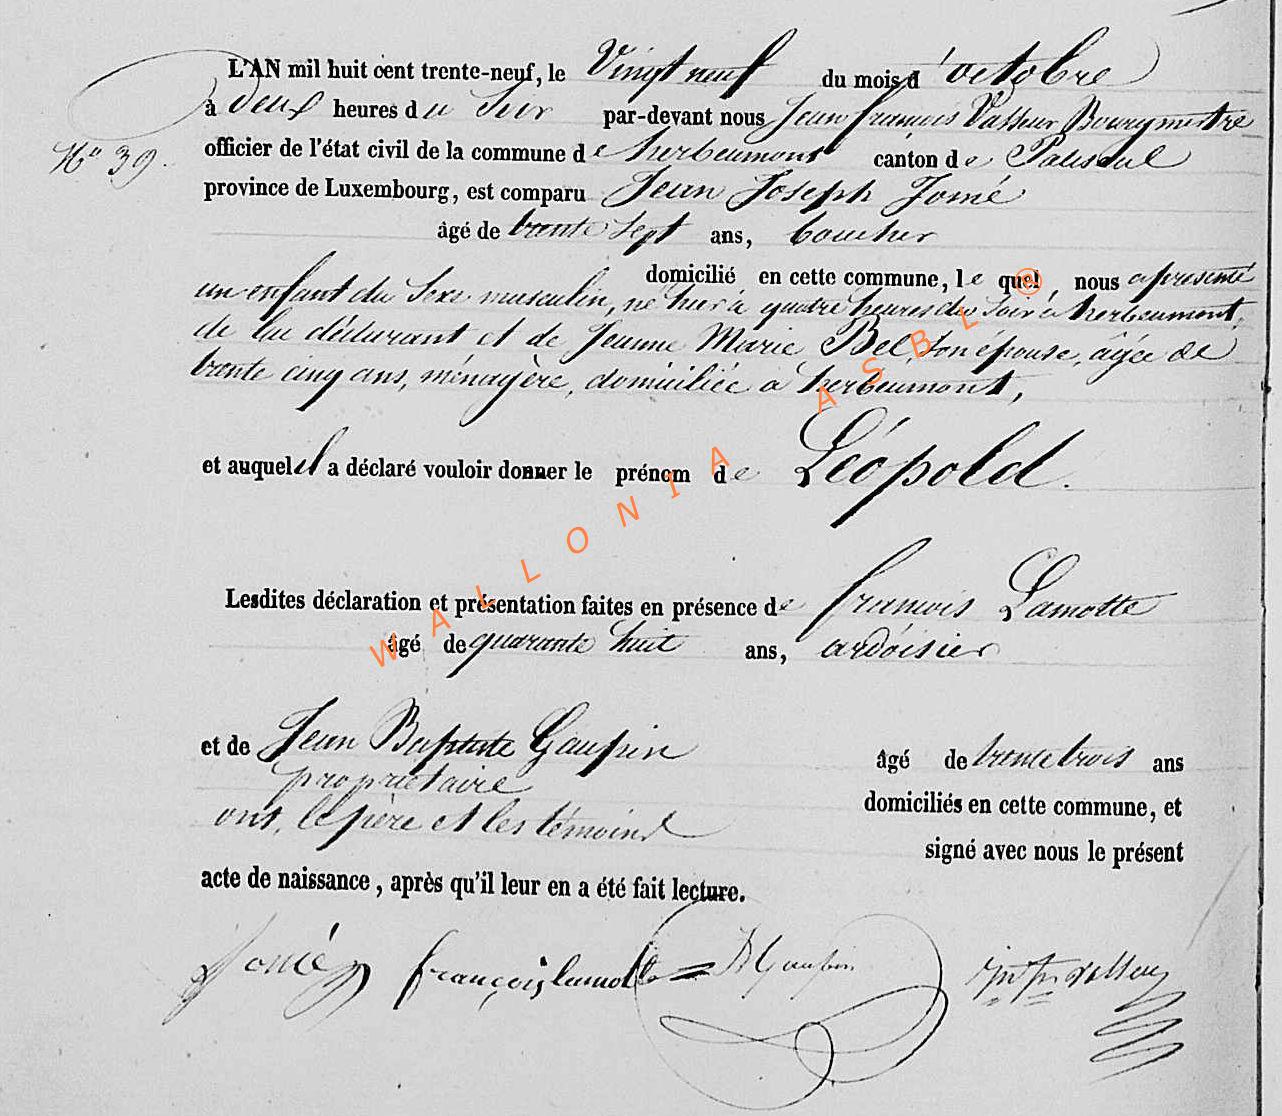 L'AN mil huit cent trente-neuf, le Vingt neuf du mois d'octobre
à deux heures du Soir par-devant nous Jean françois Vasseur Bourgmestre
N° 39.
officier de l'état civil de la commune de herbeumont canton de Paliseul
province de Luxembourg, est comparu Jean Joseph Jomé
âgé de trente sept ans, boucher
domicilié en cette commune, le quel nous a présenté
un enfant du Sexe masculin, né hier à quatre heures du Soir à herbeumont,
de lui déclarant et de Jeanne Marie Bel, son épouse, âgée de
trente cinq ans, ménagère, domiciliée à herbeumont,
et auquel il a déclaré vouloir donner le prénom de Léopold.
Lesdites déclaration et présentation faites en présence de françois Lamotte
âgé de quarante huit ans, ardoisier
et de Jean Baptiste Gaupin âgé de trente trois ans
propriétaire domiciliés en cette commune, et
ont, le père et les témoins signé avec nous le présent
acte de naissance, après qu'il leur en a été fait lecture.
Jomé françois lamotte JB Gaupin
WALLONIA ASBL @